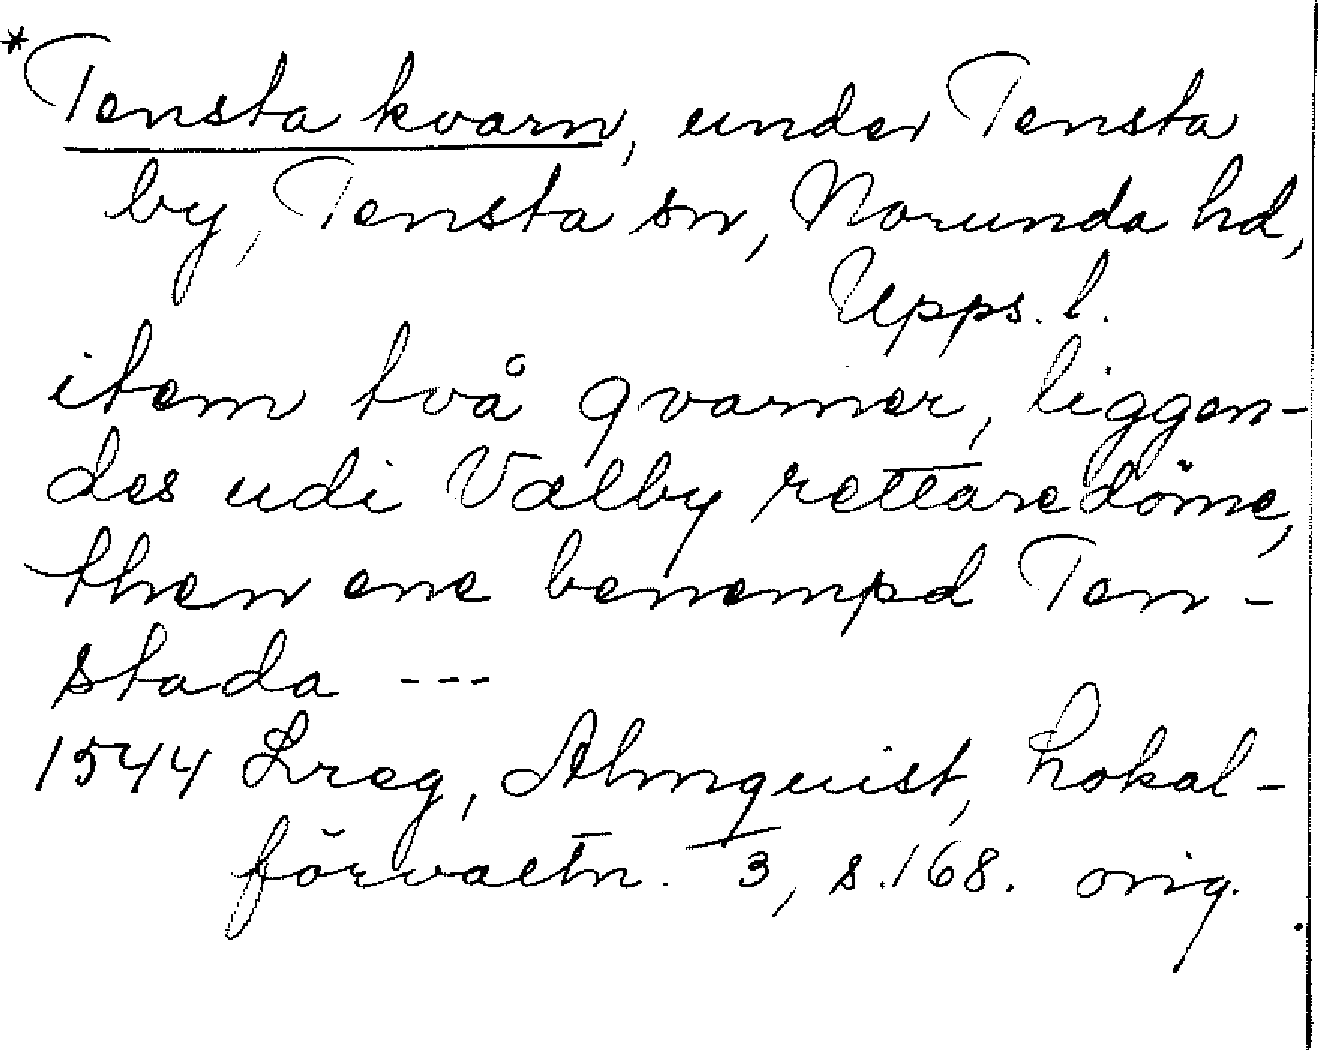 *Tensta kvarn, under Tensta
by, Tensta sn, Norunda hd,
Upps. l.
item två qvarner, liggen-
des udi Valby rettaredöme,
then ene benempd Ten-
stada ---
1544 Lreg, Almquist, Lokal-
förvaltn. 3, s.168. orig.